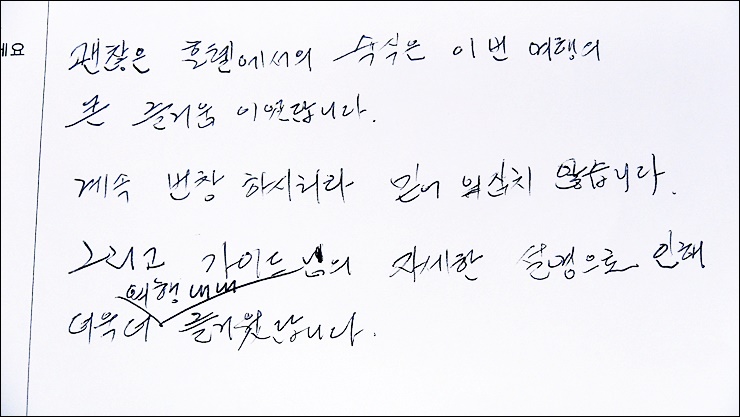 세요
괜찮은 호텔에서의 숙식은 이번 여행의
큰 즐거움 이였답니다.
계속 번창 하시리라 믿어 의심치 않습니다.
그리고 가이드님의 자세한 설명으로 인해
여행 내내
더욱더 즐거웠답니다.